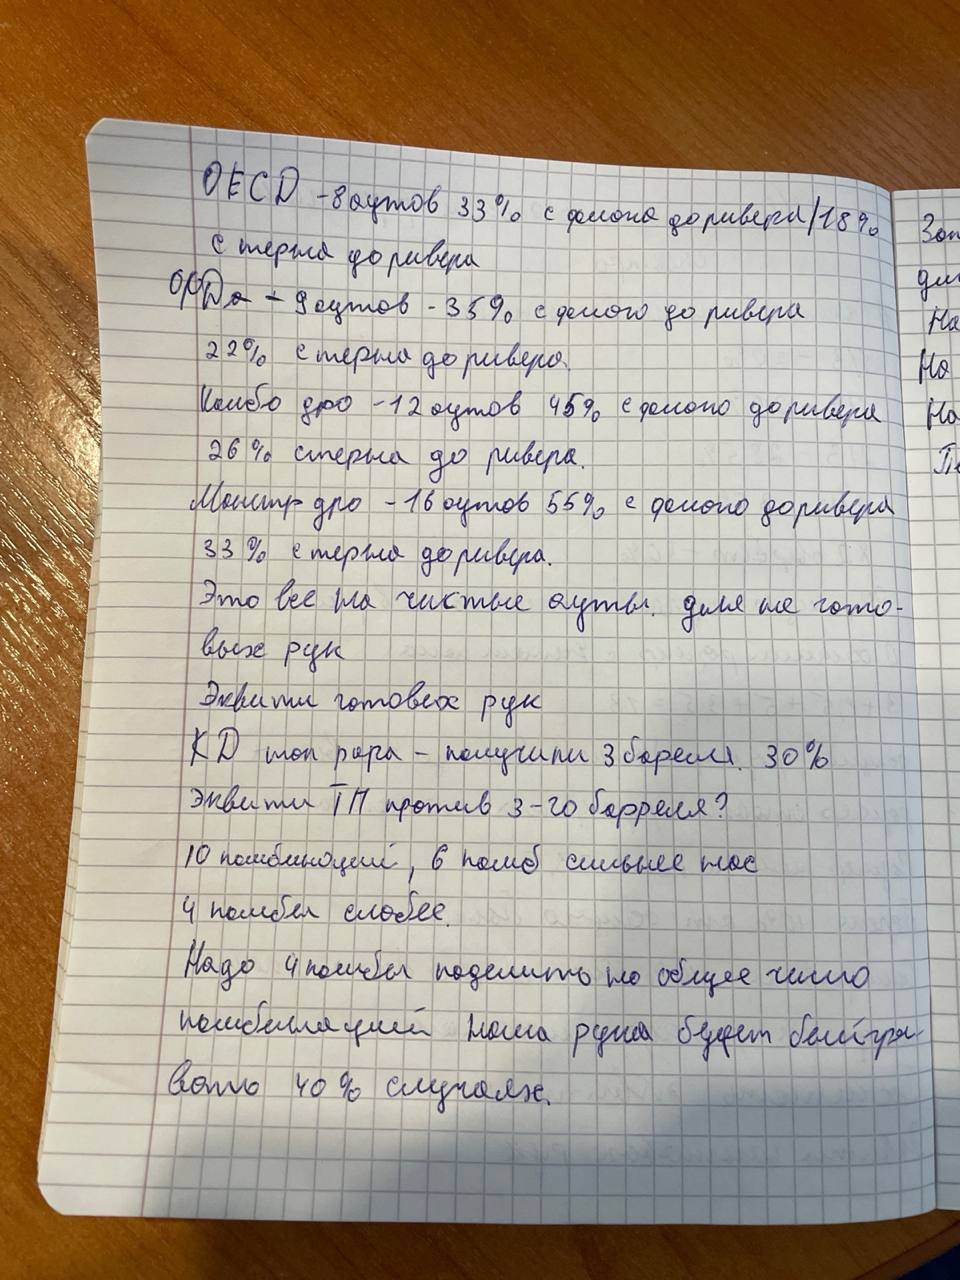 OECD - 8 аутов 33% с флопа до ривера/18%
с терна до ривера
- 9 аутов - 35% с флопа до ривера
22% с терна до ривера.
Комбо дро - 12 аутов 45% с флопа до ривера
26% с терна до ривера.
Монстр дро - 16 аутов 55% с флопа до ривера
33% с терна до ривера.
Это все на чистые ауты. для не гото-
вых рук
Эквити готовых рук
KD топ пара - получили 3 бареля. 30%
Эквити ТП против 3-го барреля?
10 комбинаций, 6 комб сильнее нас
4 комбы слабее.
Надо 4 комбы поделить на общее число
комбинаций наша рука будет выигры-
вать 40% случаях.
Зап
для
На
На
На